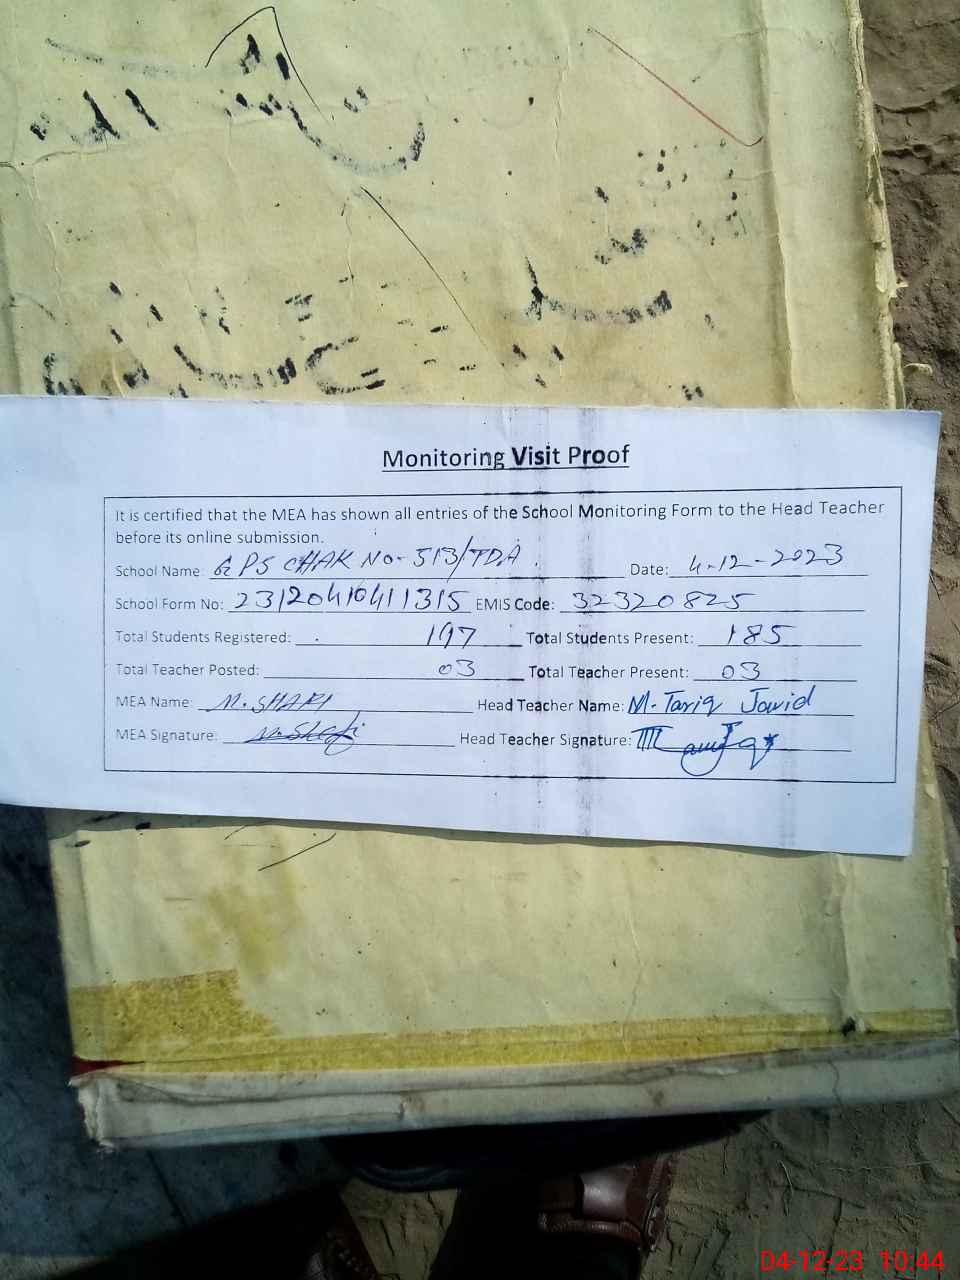 Monitoring Visit Proof
It is certified that the MEA has shown all entries of the School Monitoring Form to the Head Teacher
before its online submission.
School Name: GPS CHAK No- 513/TDA. Date: 4-12-2023
School Form No: 23120410411315 EMIS Code: 32320825
Total Students Registered: 197 Total Students Present: 185
Total Teacher Posted: 03 Total Teacher Present: 03
MEA Name: M. SHAFI Head Teacher Name: M. Tariq Javid
MEA Signature: M. Shafi Head Teacher Signature:
04-12-23 10:44